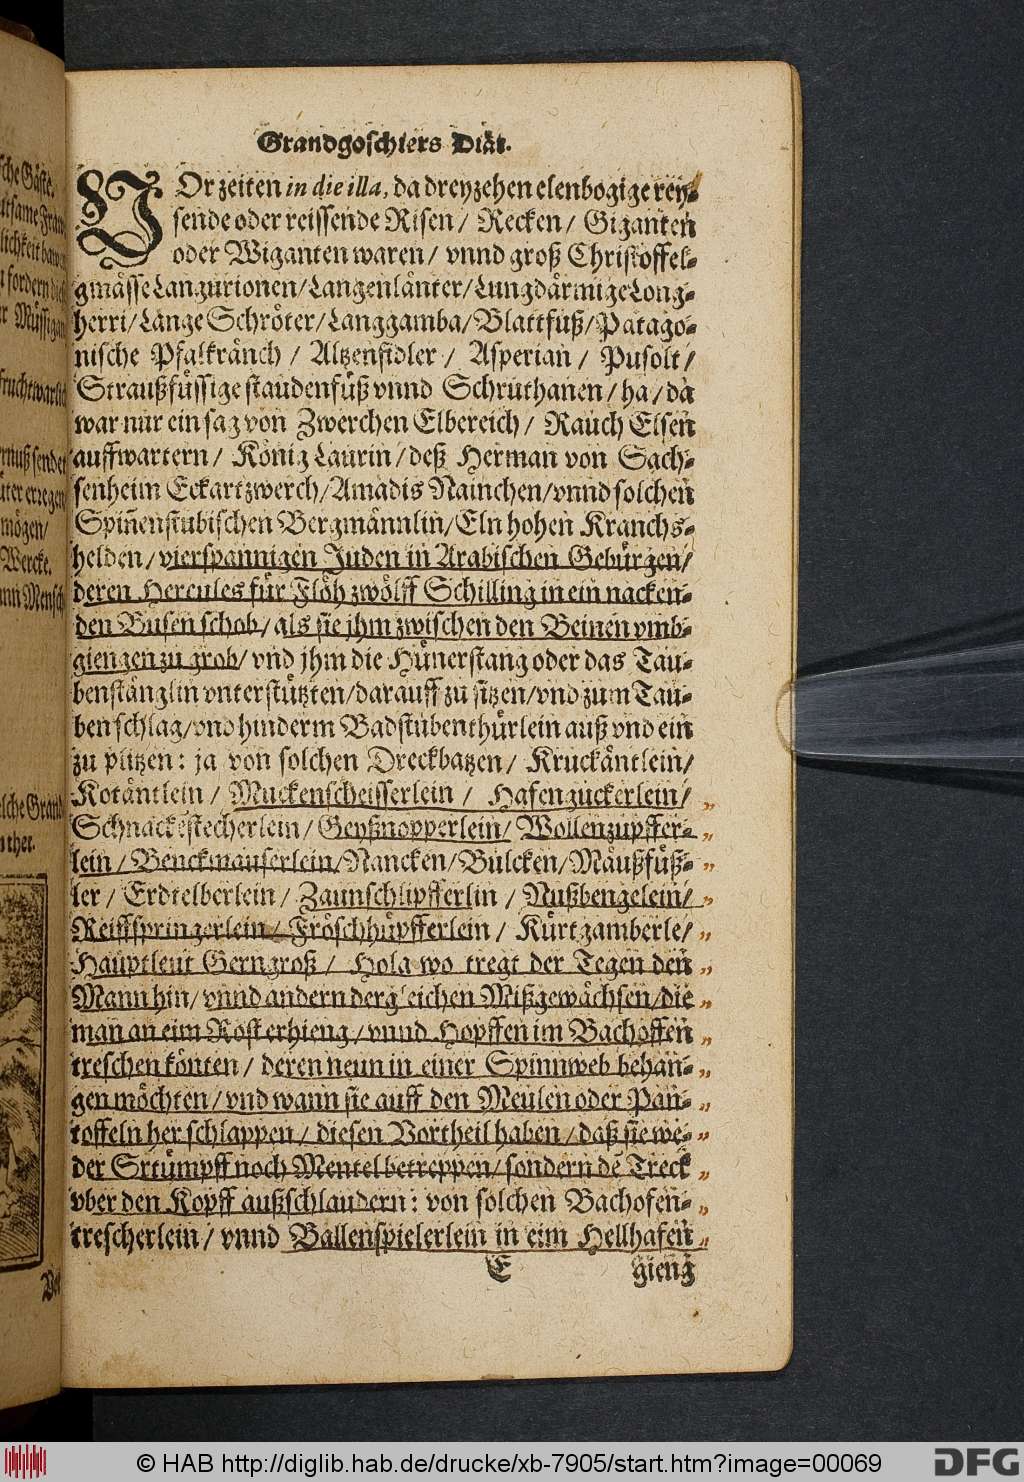 Grandgoschiers Diät.
VOr zeiten in die illa, da dreyzehen elenbogige rey-
sende oder reissende Risen / Recken / Giganten
oder Wiganten waren / vnnd groß Christoffel-
gmässe Langurionen / Langenlänter / Lungdärmige Long-
herri / Lange Schröter / Langgamba / Blattfüß / Patago-
nische Pfalkränch / Altzenfidler / Asperian / Pusolt /
Straußfüssige staudenfüß vnnd Schruthanen / ha / da
war nur ein sag von Zwerchen Elbereich / Rauch Elsen
auffwartern / König Laurin / deß Herman von Sach-
senheim Eckartzwerch / Amadis Nainchen / vnnd solchen
Spiñenstubischen Bergmännlin / Eln hohen Kranchs-
helden / vierspannigen Juden in Arabischen Gebürgen /
deren Hercules für Flöh zwölff Schilling in ein nacken-
den Busen schob / als sie jhm zwischen den Beinen vmb-
giengen zu grob / vnd jhm die Hünerstang oder das Tau-
benstänglin vnterstützten / darauff zu sitzen / vnd zum Tau-
benschlag / vnd hinderm Badstubenthürlein auß vnd ein
zu plitzen : ja von solchen Dreckbatzen / Kruckäntlein /
Kotäntlein / Muckenscheisserlein / Hafenguckerlein /
Schnackēstecherlein / Geyßnopperlein / Wollenzupffer-
lein / Benckmauserlein / Nancken / Bulcken / Mäußfüß-
ler / Erdtelberlein / Zaunschlipfferlin / Nußbengelein /
Reiffspringerlein / Fröschhüpfferlein / Kürtzamberle /
Hauptleut Gerngroß / Hola wo tregt der Tegen den
Mann hin / vnnd andern dergleichen Mißgewächsen / die
man an eim Rost erhieng / vnnd Hopffen im Bachoffen
treschen könten / deren neun in einer Spinnweb behan-
gen möchten / vnd wann sie auff den Meulen oder Pan-
toffeln her schlappen / diesen Vortheil haben / daß sie we-
der Srtümpff noch Mentel betreppen / sondern dē Treck
vber den Kopff außschlaudern : von solchen Bachofen-
trescherlein / vnnd Ballenspielerlein in eim Hellhafen
E gieng
© HAB http://diglib.hab.de/drucke/xb-7905/start.htm?image=00069
DFG